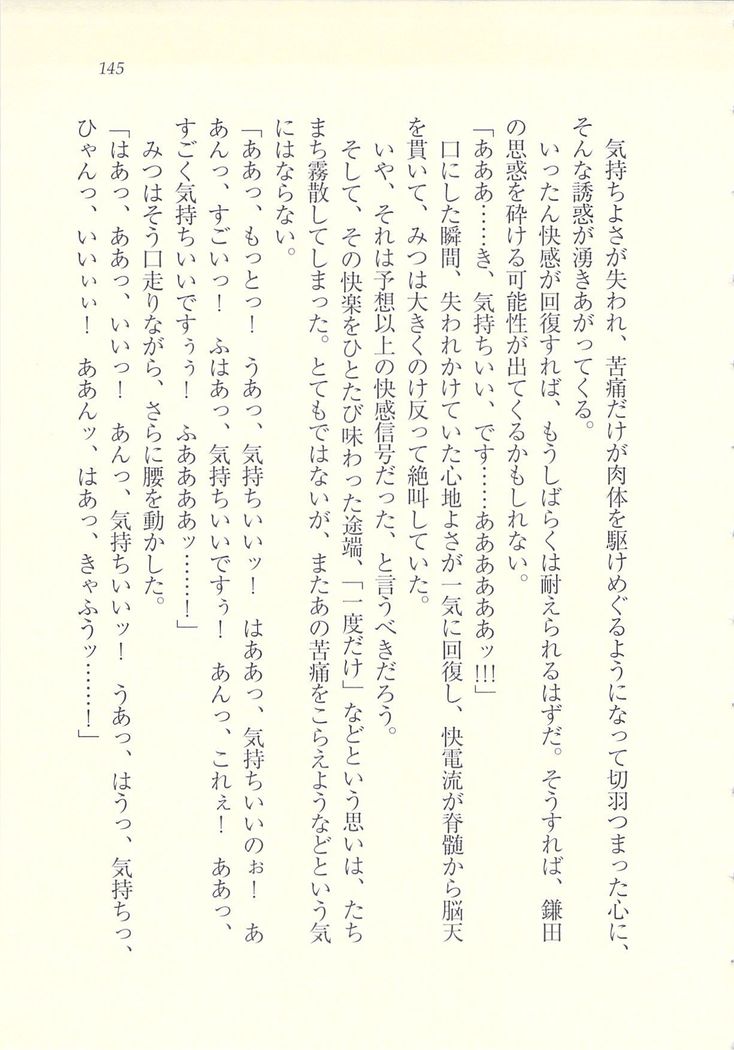 145
気持ちよさが失われ、苦痛だけが肉体を駆けめぐるようになって切羽つまった心に、
そんな誘惑が湧きあがってくる。
いったん快感が回復すれば、もうしばらくは耐えられるはずだ。そうすれば、鎌田
の思惑を砕ける可能性が出てくるかもしれない。
「あああ……き、気持ちいい、です……ああああああッ!!!」
口にした瞬間、失われかけていた心地よさが一気に回復し、快電流が脊髄から脳天
を貫いて、みつは大きくのけ反って絶叫していた。
いや、それは予想以上の快感信号だった、と言うべきだろう。
そして、その快楽をひとたび味わった途端、「一度だけ」などという思いは、たち
まち霧散してしまった。とてもではないが、またあの苦痛をこらえようなどという気
にはならない。
「ああっ、もっとっ！　うあっ、気持ちいいッ！　はああっ、気持ちいいのぉ！　あ
あんっ、すごいっ！　ふはあっ、気持ちいいですぅ！　あんっ、これぇ！　ああっ、
すごく気持ちいいですぅぅ！　ふああああッ……！」
みつはそう口走りながら、さらに腰を動かした。
「はあっ、ああっ、いいっ！　あんっ、気持ちいいッ！　うあっ、はうっ、気持ちっ、
ひゃんっ、いいぃぃ！　ああんッ、はあっ、きゃふうッ……！」